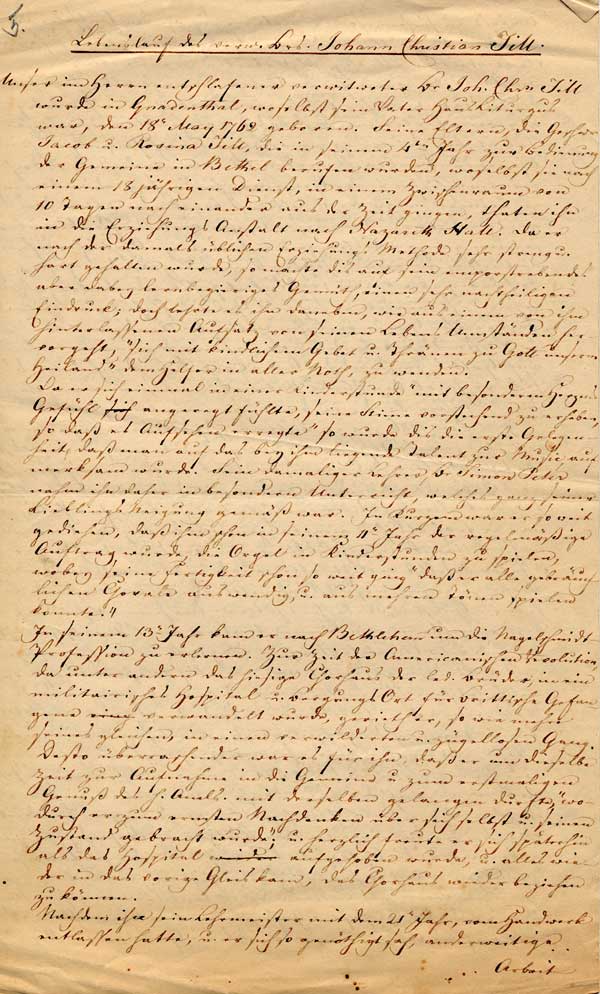 5.
Lebenslauf des verw. Brs. Johann Christian Till.
Unser im Herrn entschlafener verwitweter Br Joh. Chrn Till
wurde in Gnadenthal, woselbst sein Vater Hausliturgus
war, den 18n May 1762 geboren. Seine Eltern, die Geschw.
Jacob u. Rosina Till, die in seinem 4ten Jahr zur Bedienung
der Gemeine in Bethel berufen wurden, woselbst sie nach
einem 18 jährigen Dienst, in einem Zwischenraum von
10 Tagen nach einander aus der Zeit gingen, thaten ihn
in die Erziehungs Anstalt nach Nazareth Hall. Da er
nach der damals üblichen Erziehungs Methode sehr streng u.
hart gehalten wurde, so machte dis auf sein emporstrebendes
aber dabey lernbegieriges Gemüth, einen sehr nachtheiligen
Eindruck; doch lehrte es ihn daneben, wie aus einem von ihm
hinterlassenen Aufsatz von seinen Lebens Umständen her
vorgeht, "sich mit kindlichem Gebet u. Thränen zu Gott unserm
Heiland" dem Helfer in aller Noth, zu wenden.
Da er sich einmal in einer Kinderstunde "mit besonderm Herzens
Gefühl angeregt fühlte, seine Stimme vorstechend zu erheben,
so daß es Aufsehen erregte" so wurde dis die erste Gelegen-
heit, daß man auf das bey ihm liegende Talent zur Music auf
merksam wurde. Sein damaliger Lehrer, Br Simon Peter
nahm ihn daher in besondern Unterricht, welches ganz seiner
Lieblings Neigung gemäß war. In Kurzem war er so weit
gediehen, daß ihm schon in seinem Jahr der regelmäßige
Auftrag wurde, die Orgel in Kinderstunden zu spielen,
wobey seine Fertigkeit schon so weit ging "daß er alle gebräuch
lichen Chorale auswendig, u. aus mehrern Tönen spielen
konnte."
In seinem 13n Jahr kam er nach Bethlehem um die Nagelschmidt
Profession zu erlernen. Zur Zeit der Americanischen Revolution,
da unter andern das hiesige Chorhaus der led. Brüder, in ein
militairisches Hospital u. Bergungs Ort für brittische Gefan
gene verwandelt wurde, gerieth er, so wie mehre
seines gleichen, in einen verwilderten u. zügellosen Gang.
Desto überraschender war es für ihn, daß er um dieselbe
Zeit zur Aufnahme in die Gemeine u. zum erstmaligen
Genuß des h. Abdls. mit derselben gelangen durfte, "wo-
durch er zum ernsten Nachdenken über sich selbst u. seinen
Zustand gebracht wurde," u. herzlich freute er sich späterhin
als das Hospital aufgehoben wurde, u. alles wie
der in das vorige Gleis kam, das Chorhaus wieder beziehen
zu können.
Nachdem ihn sein Lehrmeister mit dem 21n Jahr, vom Handwerk
entlassen hatte, u. er sich so genöthigt sah, anderweitige
Arbeit